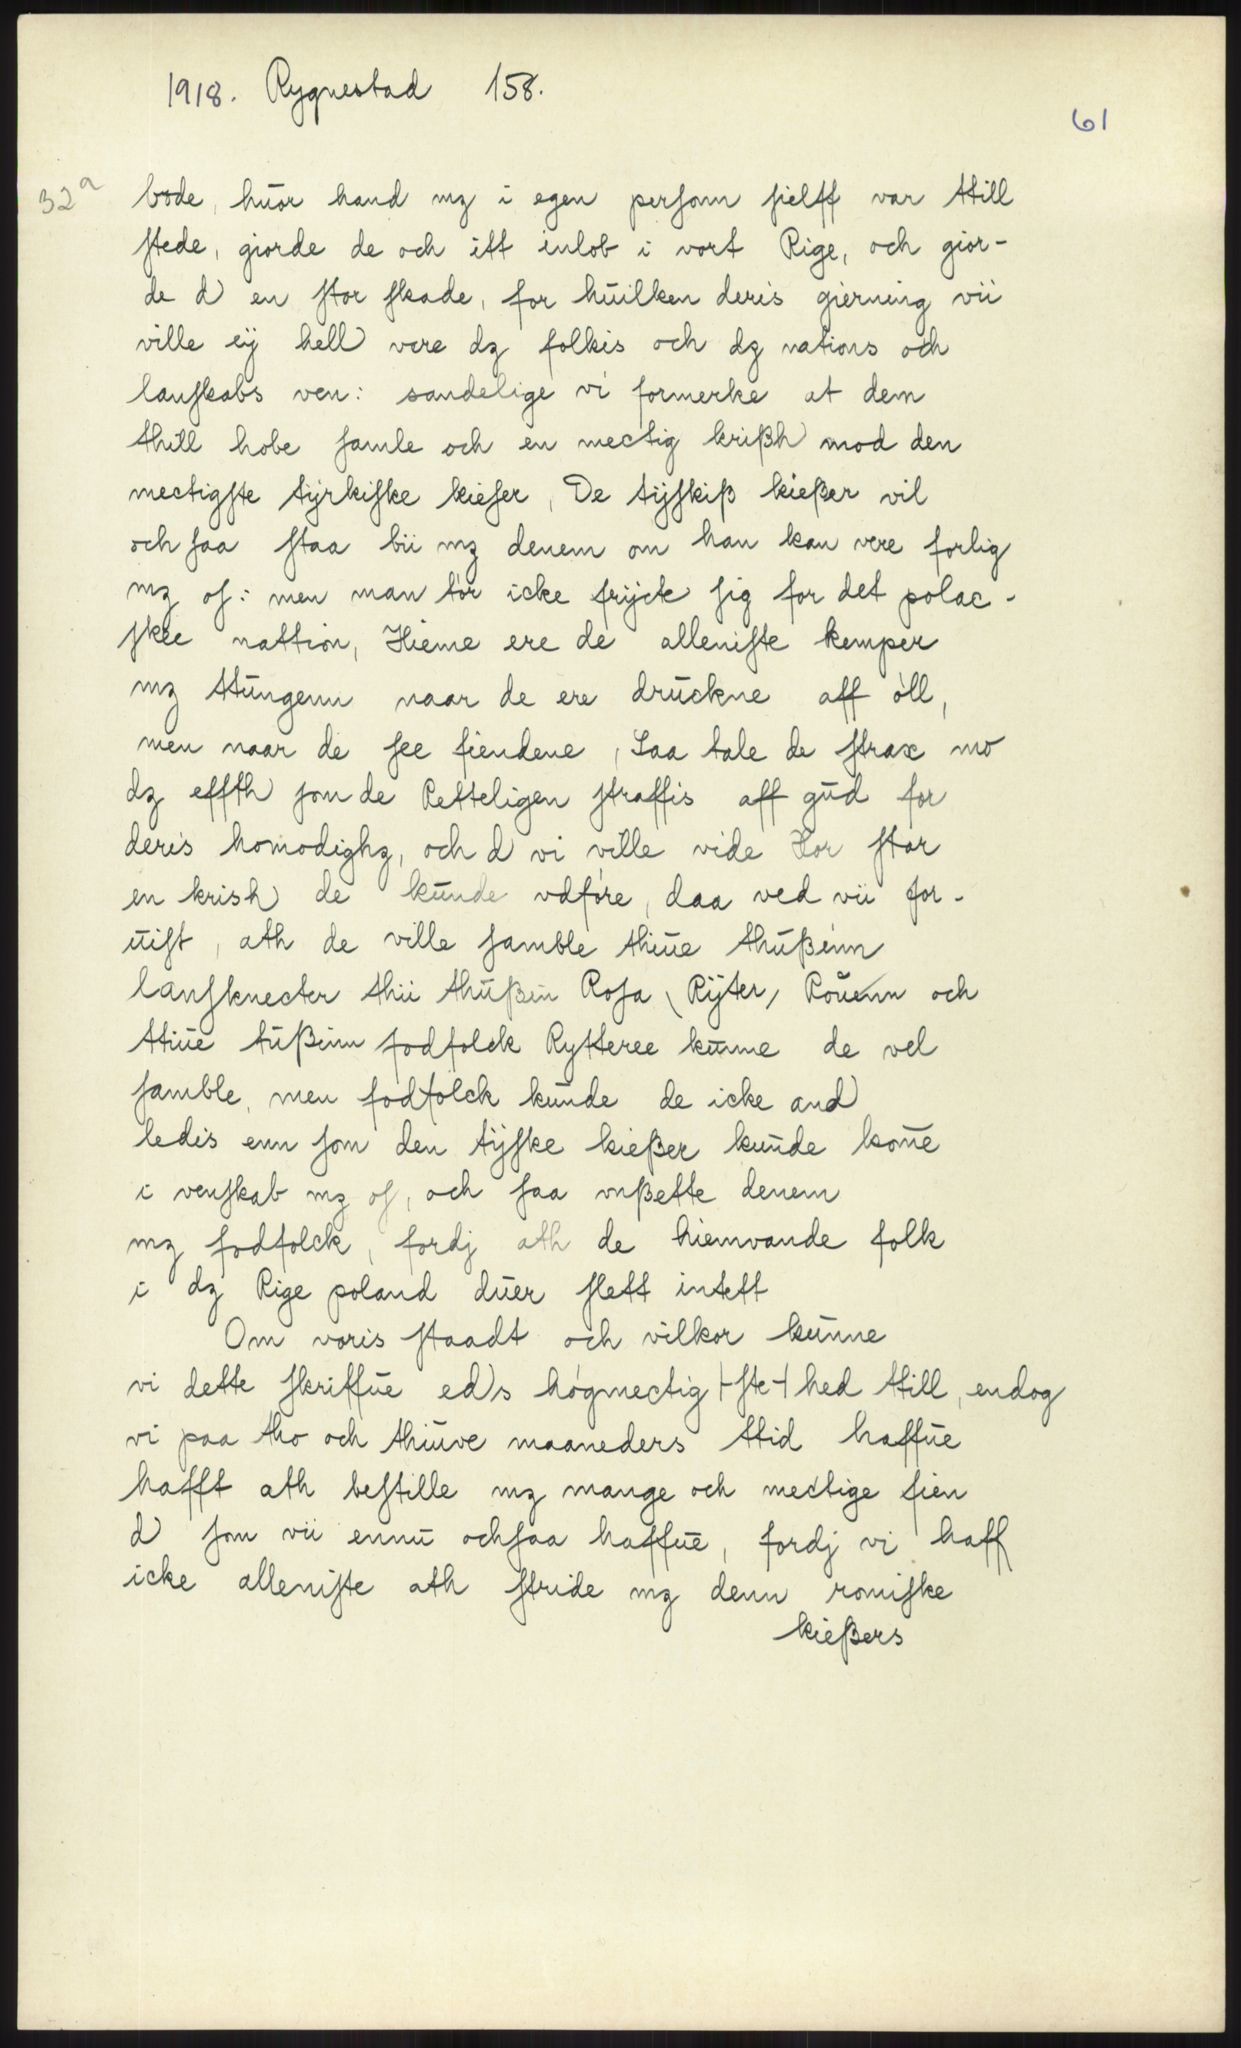 1918. Rygnestad 158.
61
32a bode, huor hand mz i egen perſonn ſielff var ttill
ſtede, giorde de och itt inlob i vort Rige, och gior-
de d en ſtor ſkade, for huilken deris gierning vii
ville eÿ hell vere dz folkis och dz nations och
lanſkabs ven: sandelige vi formerke at dem
thill hobe ſamle och en mectig krißh mod den
mectigſte tÿrkiſke kieſer, De tÿſkiß kießer vil
och ſaa ſtaa bii mz denem om han kan vere forlig
mz oſ: men man tór icke frÿcte ſig for det polac-
ſkee nattion, Hieme ere de alleniſte kemper
mz ttungenn naar de ere druckne aff óll,
men naar de ſee fiendene, Saa tale de ſtrax mo
dz effth ſom de Retteligen ſtraffis aff gud for
deris homodighz, och d vi ville vide Hor ſtor
en krish de kunde vdfóre, daa ved vii for-
uiſt, ath de ville ſamble thiue thußinn
lanſknecter thii thußin Roſa (Rÿter) Rouenn och
ttiue tußinn fodfolck Rytteree kunne de vel
ſamble, men fodfolck kunde de icke and
ledis enn ſom den tÿſke kießer kunde kome
i venſkab mz oſ, och ſaa vnßette denem
mz fodfolck, fordj ath de hiemvande folk
i dz Rige poland duer ſlett intett
Om voris ſtaadt och vilkor kunne
vi dette ſkriffue eds hógmectig|-ſte-|hed ttill, endog
vi paa tho och thiuve maaneders ttid haffue
hafft ath beſtille mz mange och mectige fien
d ſom vii ennu ochſaa haffue, fordj vi haff
icke alleniſte ath ſtride mz denn romiſke
kießers